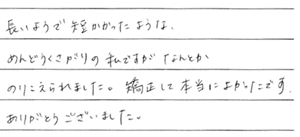 長いようで短かかったような、
めんどうくさがりの私ですがなんとか
のりこえられました。矯正して本当によかったです。
ありがとうございました。